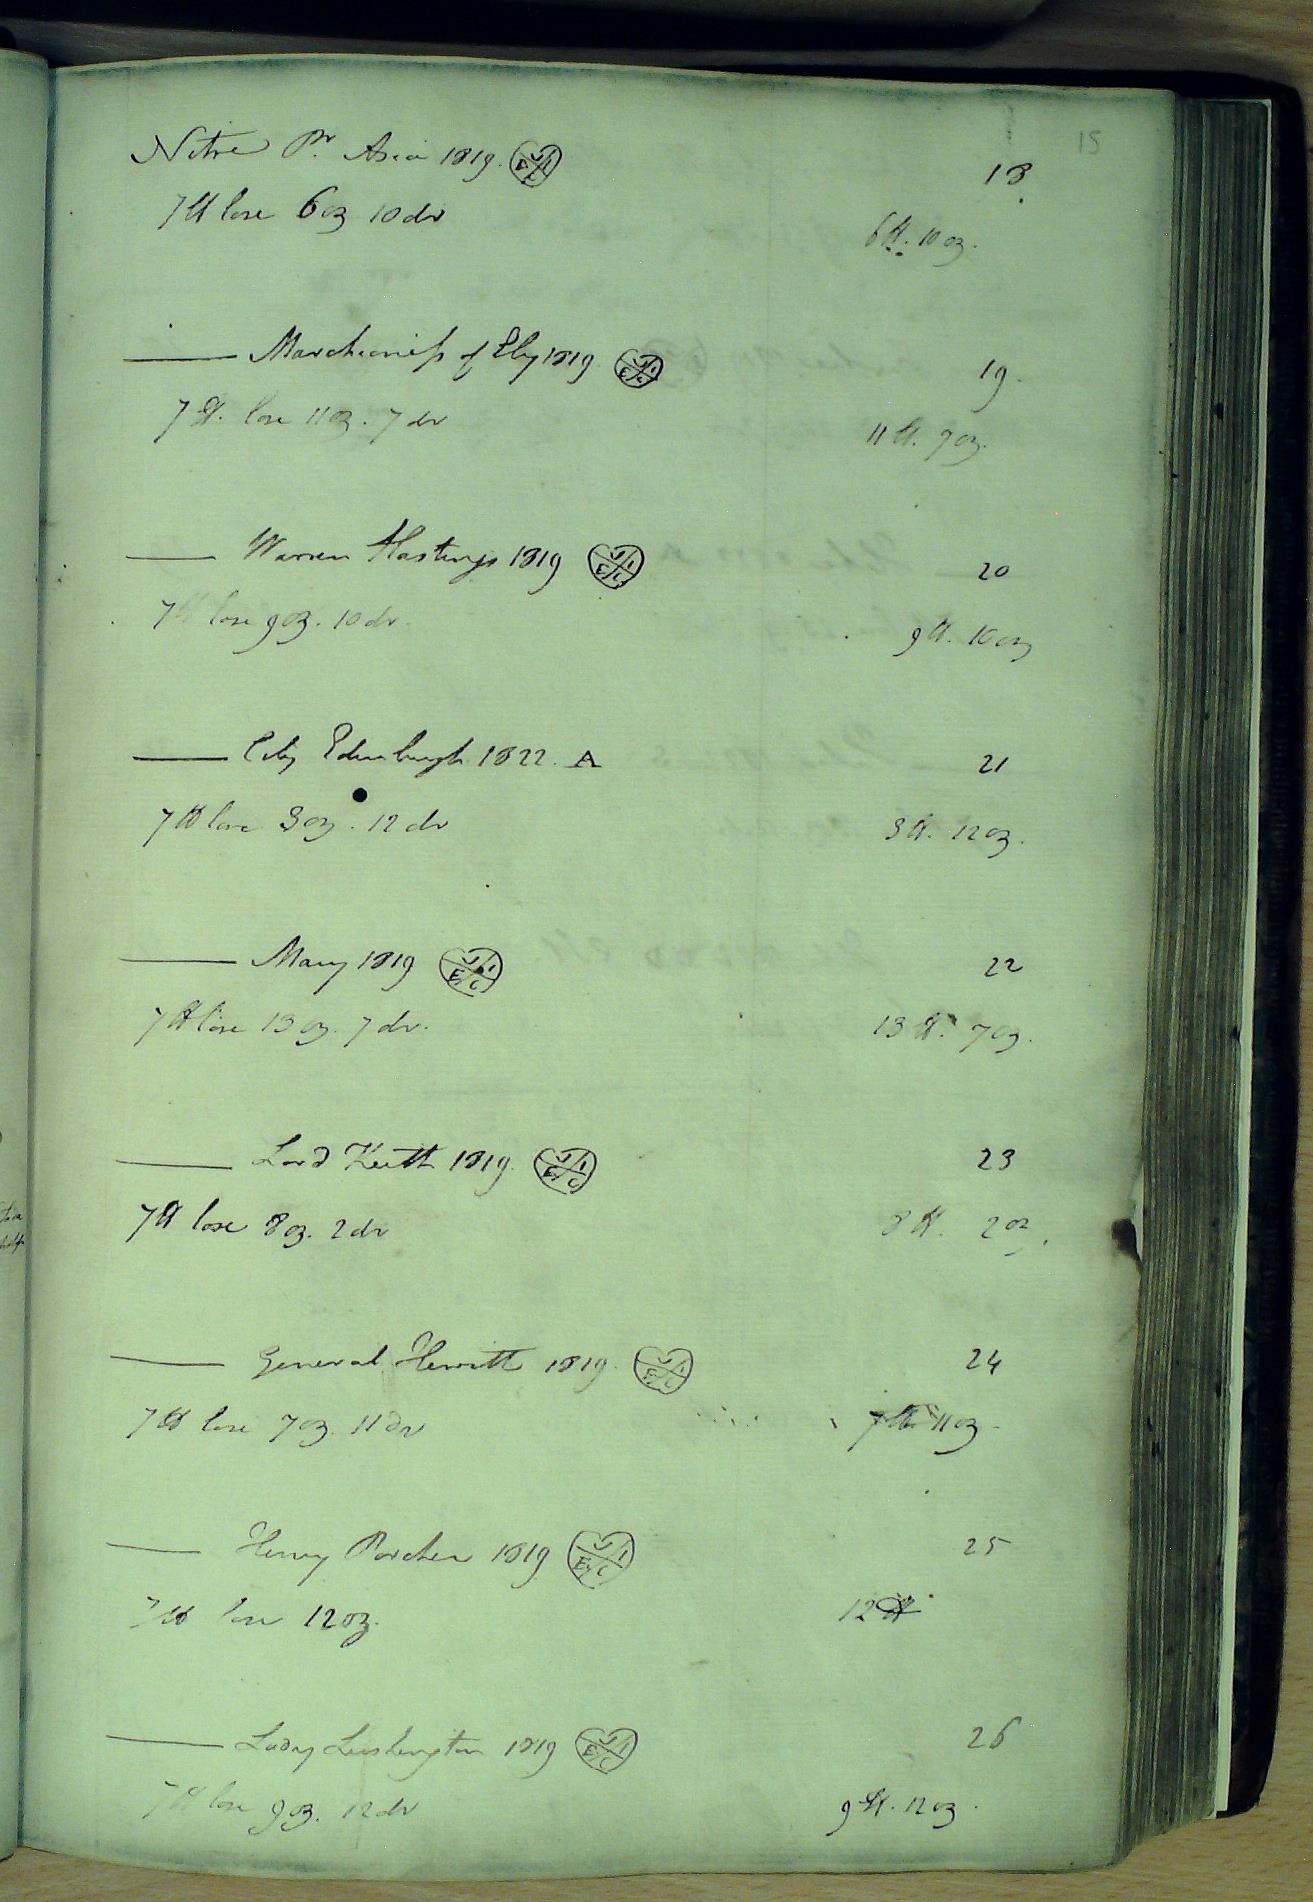 15
Nitre Pr. Asia 1819. V E I C 18
7 lb lose 6 oz 10 dr
6 lb. 10 oz.
—— Marchioness of Ely 1819 V E I C 19.
7 lb. lose 11 oz. 7 dr
11 lb. 7 oz.
—— Warren Hastings 1819 V E I C 20
7 lb lose 9 oz. 10 dr.
9 lb. 10 oz
—— City Edinburgh 1822. A 21
7 lb lose 3 oz. 12 dr
3 lb. 12 oz.
—— Mary 1819 V E I C 22
7 lb lose 13 oz. 7 dr.
13 lb. 7 oz.
—— Lord Keith 1819. V E I C 23
7 lb lose 8 oz. 2 dr
8 lb. 2 oz.
—— General Hewitt 1819. V E I C 24
7 lb lose 7 oz. 11 dr
7 lb 11 oz.
—— Henry Porcher 1819 V E I C 25
7 lb lose 12 oz.
12 lb
—— Lady Lushington 1819 V E I C 26
7 lb lose 9 oz. 12 dr
9 lb. 12 oz.